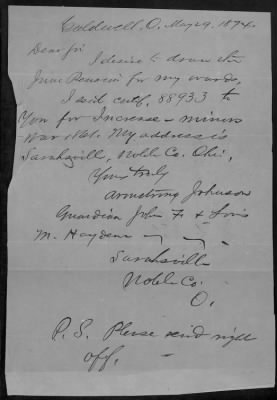 Caldwell, O. May 29, 1894.
Dear Sir
I desire to draw the
June Pension for my wards,
I sent certf. 88933 to
You for Increase – minors
War of My address is
Sarahsville, Noble Co. Ohio,
Yours truly
Armstrong Johnson
Guardian John F. &
M. Hayden
Sarahsville
Noble Co.
O.
P.S. Please send right
off. –